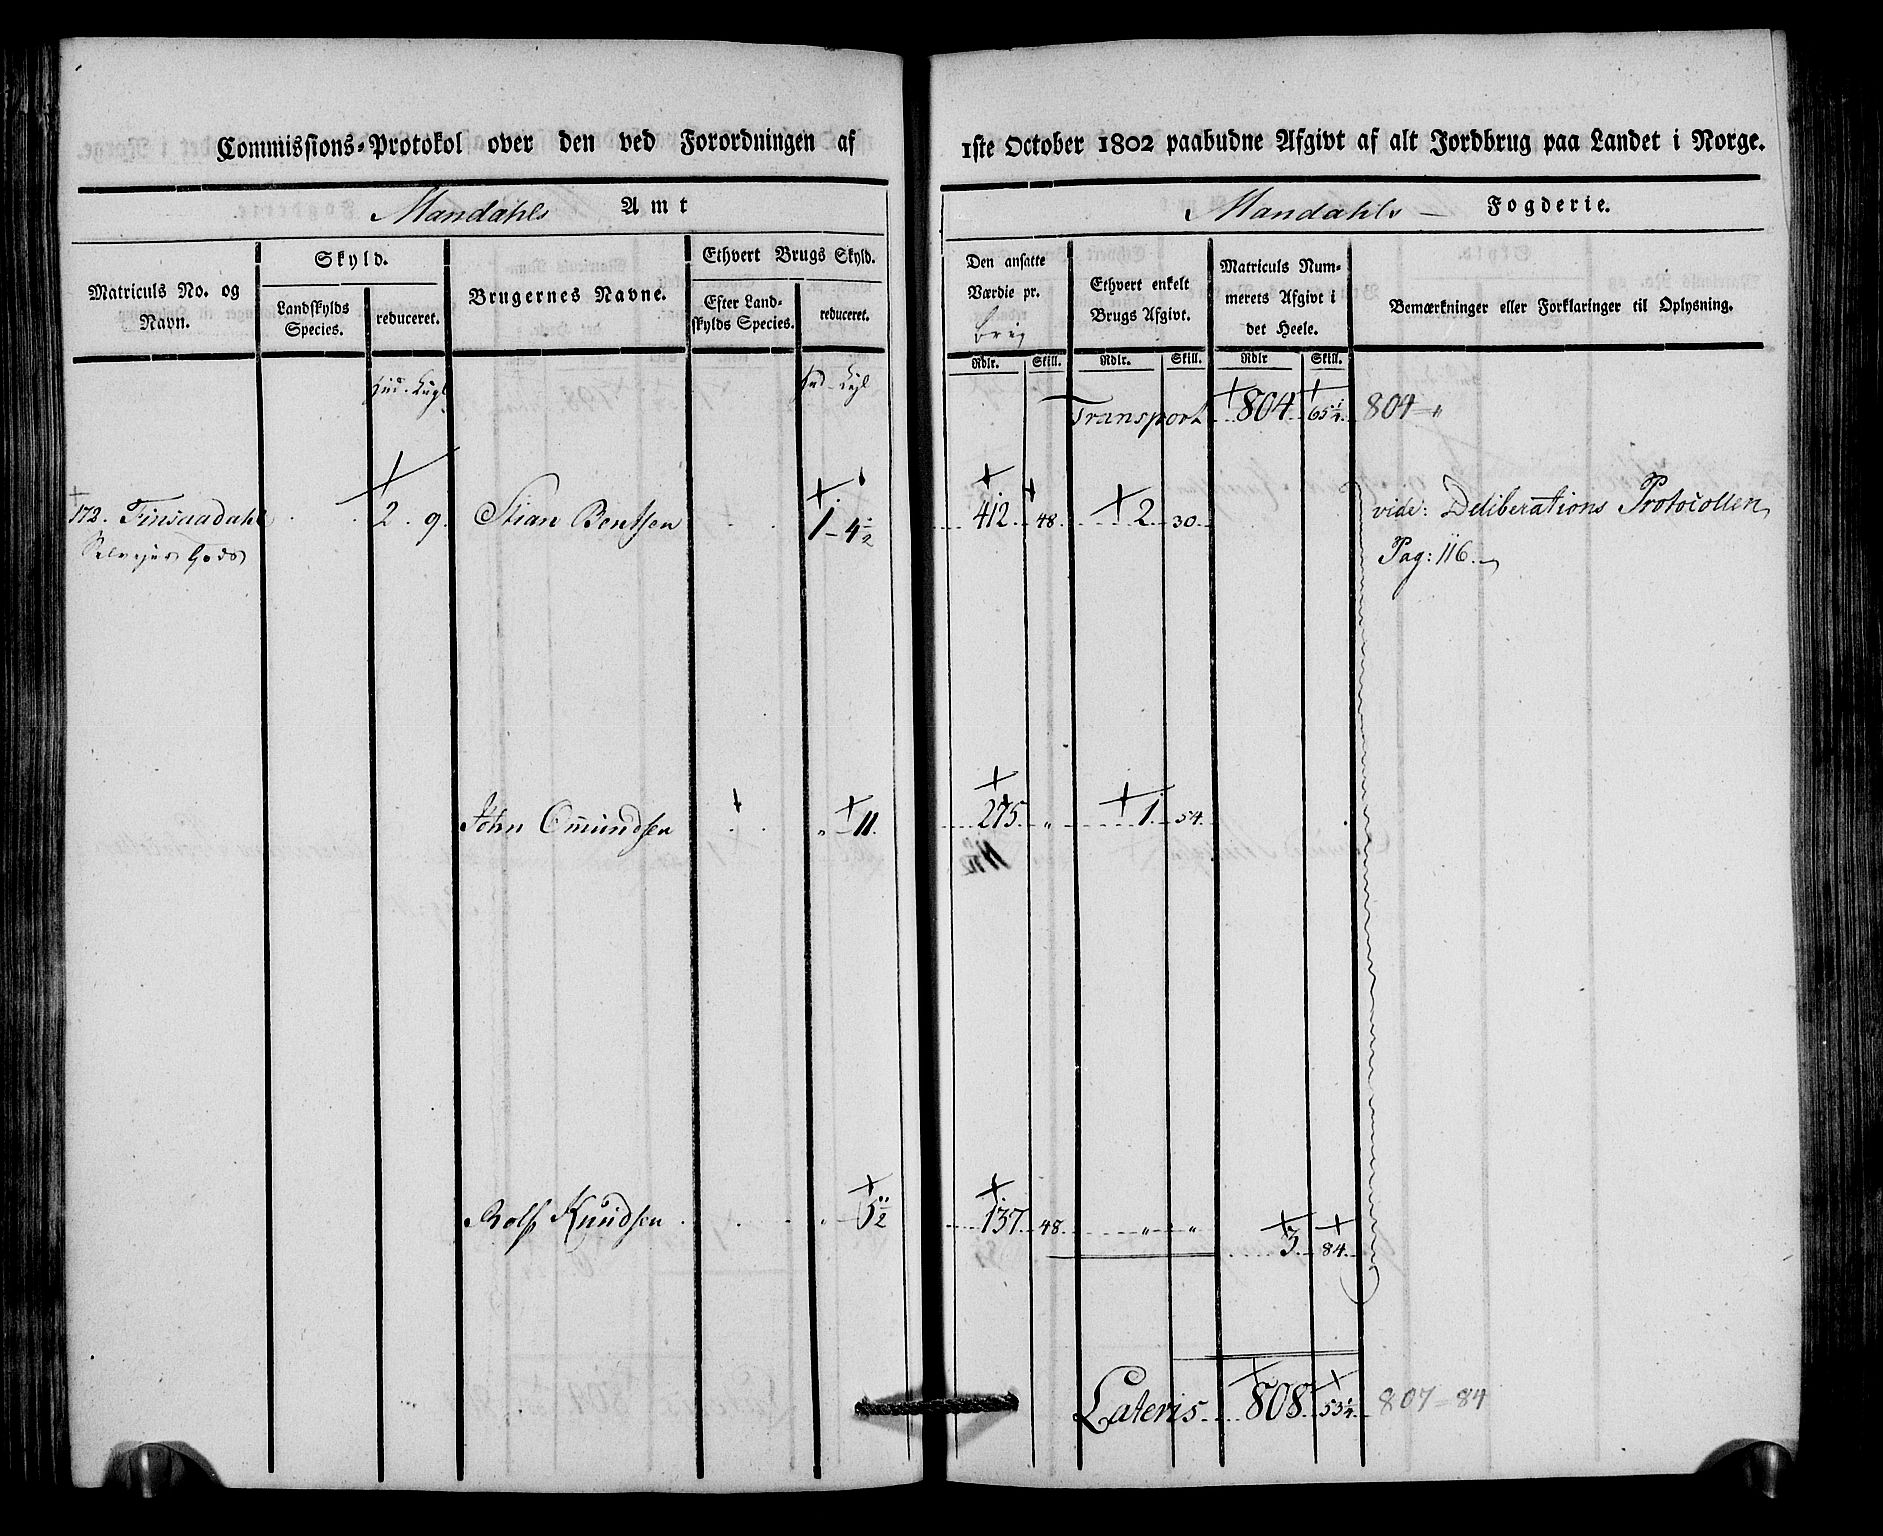 Commissions-Protokol over den ved Forordningen af 1ste October 1802 paabudne Afgivt af alt Jordbrug paa Landet i Norge.
Mandahls Amt
Mandahls Fogderie.
Matriculs No. og Navn.
Skyld.
Landskylds Species.
reduceret.
Brugernes Navne.
Ethvert Brugs Skyld.
Efter Landskylds Species.
reduceret.
Den ansatte Værdie pr.
Rdlr. Skill.
Ethvert enkelt Brugs Afgivt.
Rdlr. Skill.
Matriculs Nummerets Afgivt i det Heele.
Rdlr Skill.
Bemærkninger eller Forklaringer til Oplysning.
Transport 804 65 1/4 804 "
172. Finsaadahl 2. 9. Stian Bentsen 1 - 4 1/2 412. 48 2 30 vide: Deliberations Protocollen
Selvejer Gods Pag: 116.
John Omundsen " 11. 275. " 1. 54
Rolf Knudsen " 5 1/2 137. 48. " " 3. 84.
Lateris 808. 53 1/4 807 = 84